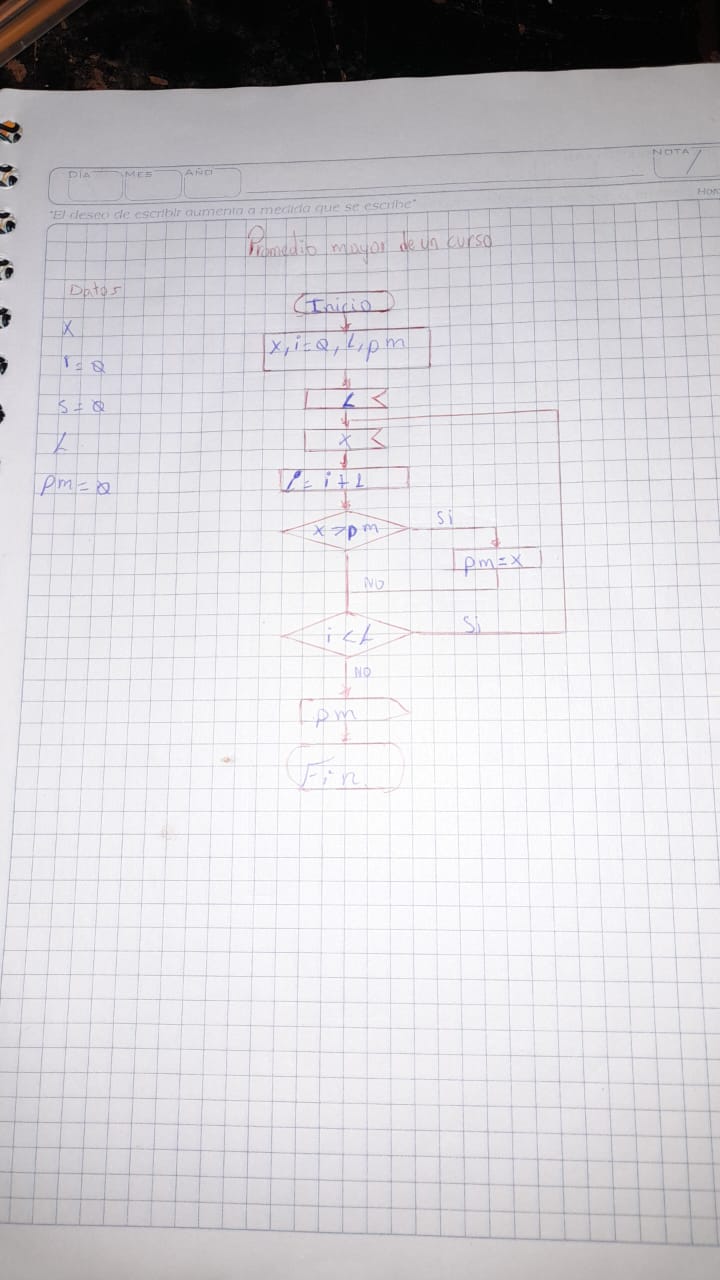 DIA MES AÑO
NOTA
HOR
"El deseo de escribir aumenta a medida que se escribe"
Promedio mayor de un curso
Datos
X
i = 0
S = 0
L
pm = 0
Inicio
x, i = 0, L, pm
L
x
i = i + 1
x > pm
Si
pm = x
NO
i < L
Si
NO
pm
Fin